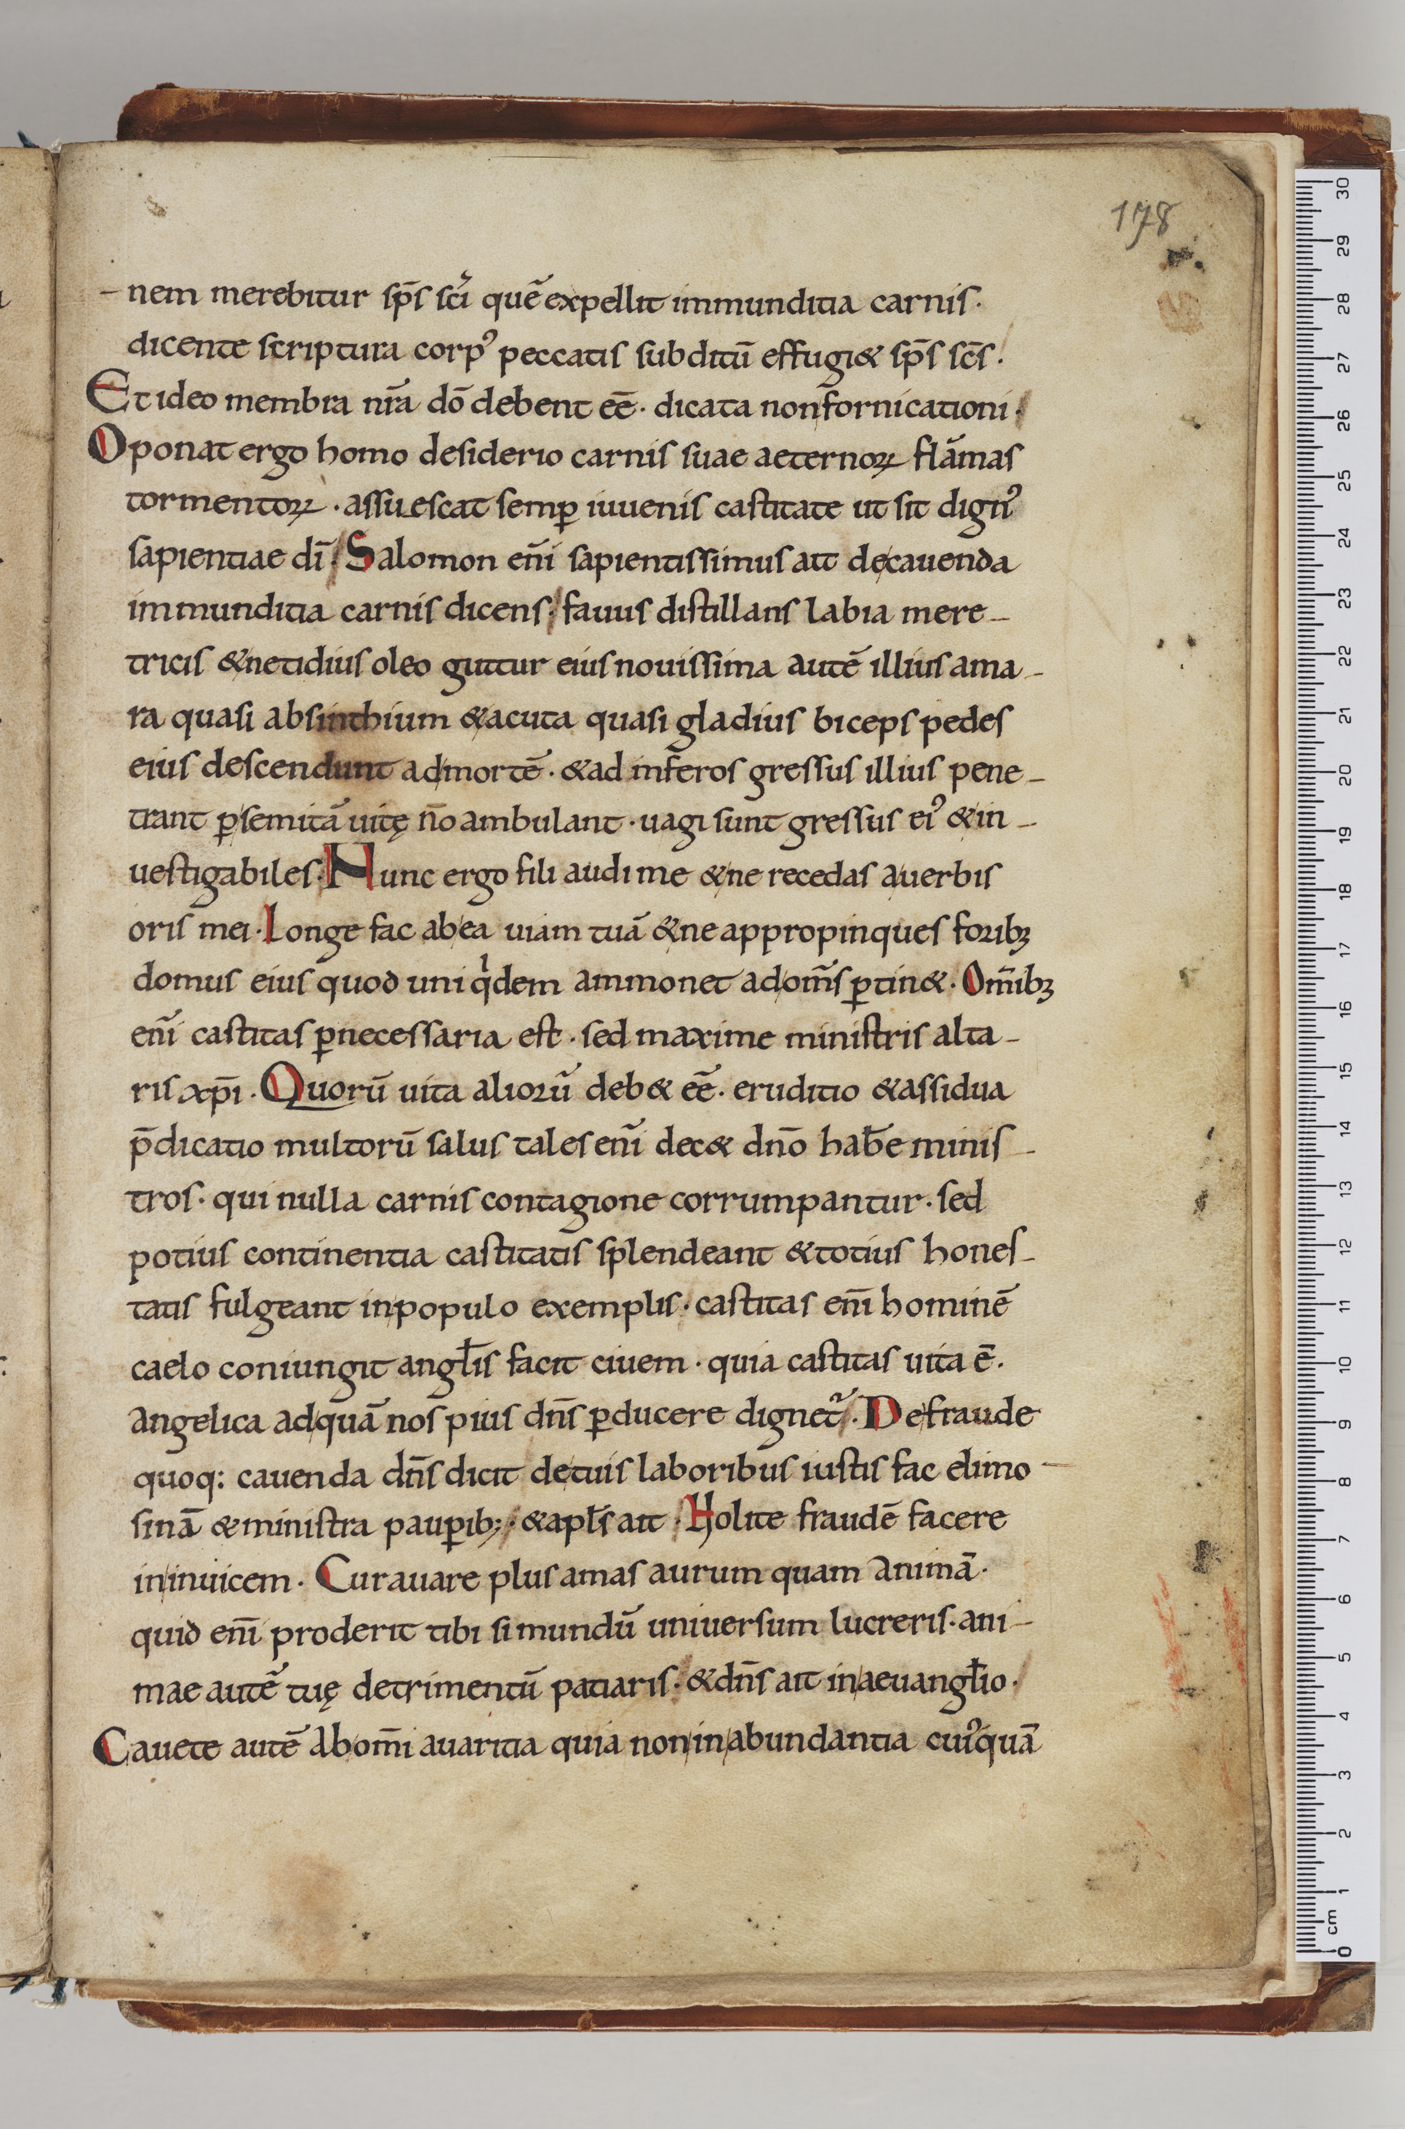 178
nem merebitur sp̄s sc̄i quē expellit immunditia carnis·
dicente scriptura corp᾽ peccatis subditū effugi& sp̄s sc̄s·
Et ideo membra nr̄a dō debent eē· dicata non fornicationi·
Oponat ergo homo desiderio carnis suae aeternoꝝ flāmas
tormentoꝝ· assuescat semꝑ iuuenis castitate ut sit dign᾽
sapientiae dī· Salomon enī sapientissimus ait de cauenda
immunditia carnis dicens· fauus distillans labia mere-
tricis & netidius oleo guttur eius nouissima autē illius ama-
ra quasi absinthium & acuta quasi gladius biceps pedes
eius descendunt ad mortē· & ad inf̄eros gressus illius pene-
trant ꝑ semitā uitę nō ambulant· uagi sunt gressus ei᾽ & in-
uestigabiles· Nunc ergo fili audi me & ne recedas a uerbis
oris mei· Longe fac ab ea uiam tuā & ne appropinques foribꝫ
domus eius quod uni qͥdem ammonet ad om̄s ꝑtin&· Om̄ibꝫ
enī castitas ꝑnecessaria est· sed maxime ministris alta-
ris xp̄i· Quorū uita aliorū deb& eē· eruditio & assidua
p̄dicatio multorū salus tales enī dec& dn̄o hab̄e minis-
tros· qui nulla carnis contagione corrumpantur· sed
potius continentia castitatis splendeant & totius hones-
tatis fulgeant in populo exemplis· castitas enī hominē
caelo coniungit angl̄is facit ciuem· quia castitas uita ē·
angelica ad quā nos pius dn̄s ꝑducere dignet᷑· De fraude
quoq: cauenda dn̄s dicit de tuis laboribus iustis fac elimo-
sinā & ministra pauꝑib;· & apl̄s ait· Nolite fraudē facere
in inuicem· Cur auare plus amas aurum quam animā·
quid enī proderit tibi si mundū uniuersum lucreris· ani-
mae autē tuę detrimentū patiaris· & dn̄s ait in aeuangl̄io·
Cauete autē ab om̄i auaritia quia non in abundantia cui᾽quā
30
29
28
27
26
25
24
23
22
21
20
19
18
17
16
15
14
13
12
11
10
9
8
7
6
5
4
3
2
1
cm
0